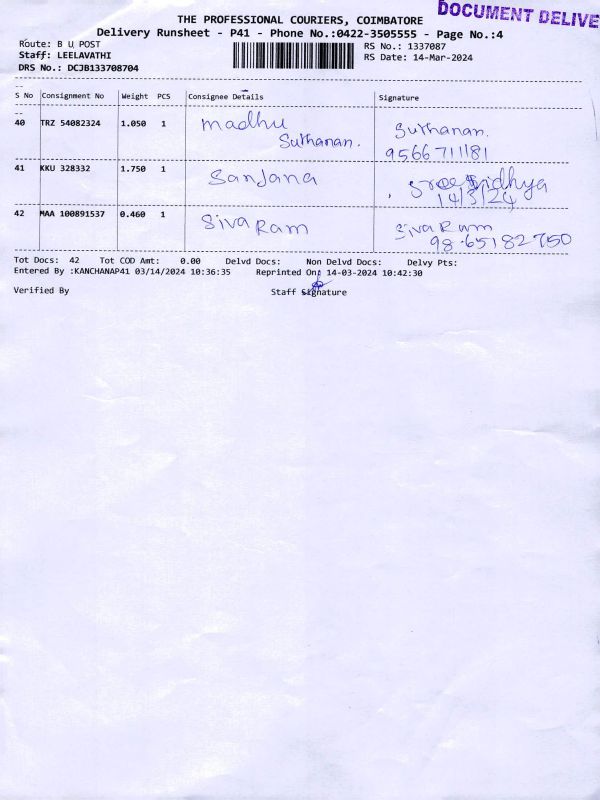 THE PROFESSIONAL COURIERS, COIMBATORE
DOCUMENT DELIVE
Delivery Runsheet - P41 - Phone No.:0422-3505555 - Page No.:4
Route: B U POST
RS No.: 1337087
Staff: LEELAVATHI
RS Date: 14-Mar-2024
DRS No.: DCJB133708704
S No Consignment No Weight PCS Consignee Details Signature
40 TRZ 54082324 1.050 1 madhu Suthanan. Suthanan.
9566711181
41 KKU 328332 1.750 1 Sanjana Sree Sridhya
14/3/24
42 MAA 100891537 0.460 1 Siva Ram Siva Ram
98.65182750
Tot Docs: 42 Tot COD Amt: 0.00 Delvd Docs: Non Delvd Docs: Delvy Pts:
Entered By :KANCHANAP41 03/14/2024 10:36:35 Reprinted On: 14-03-2024 10:42:30
Verified By Staff Signature